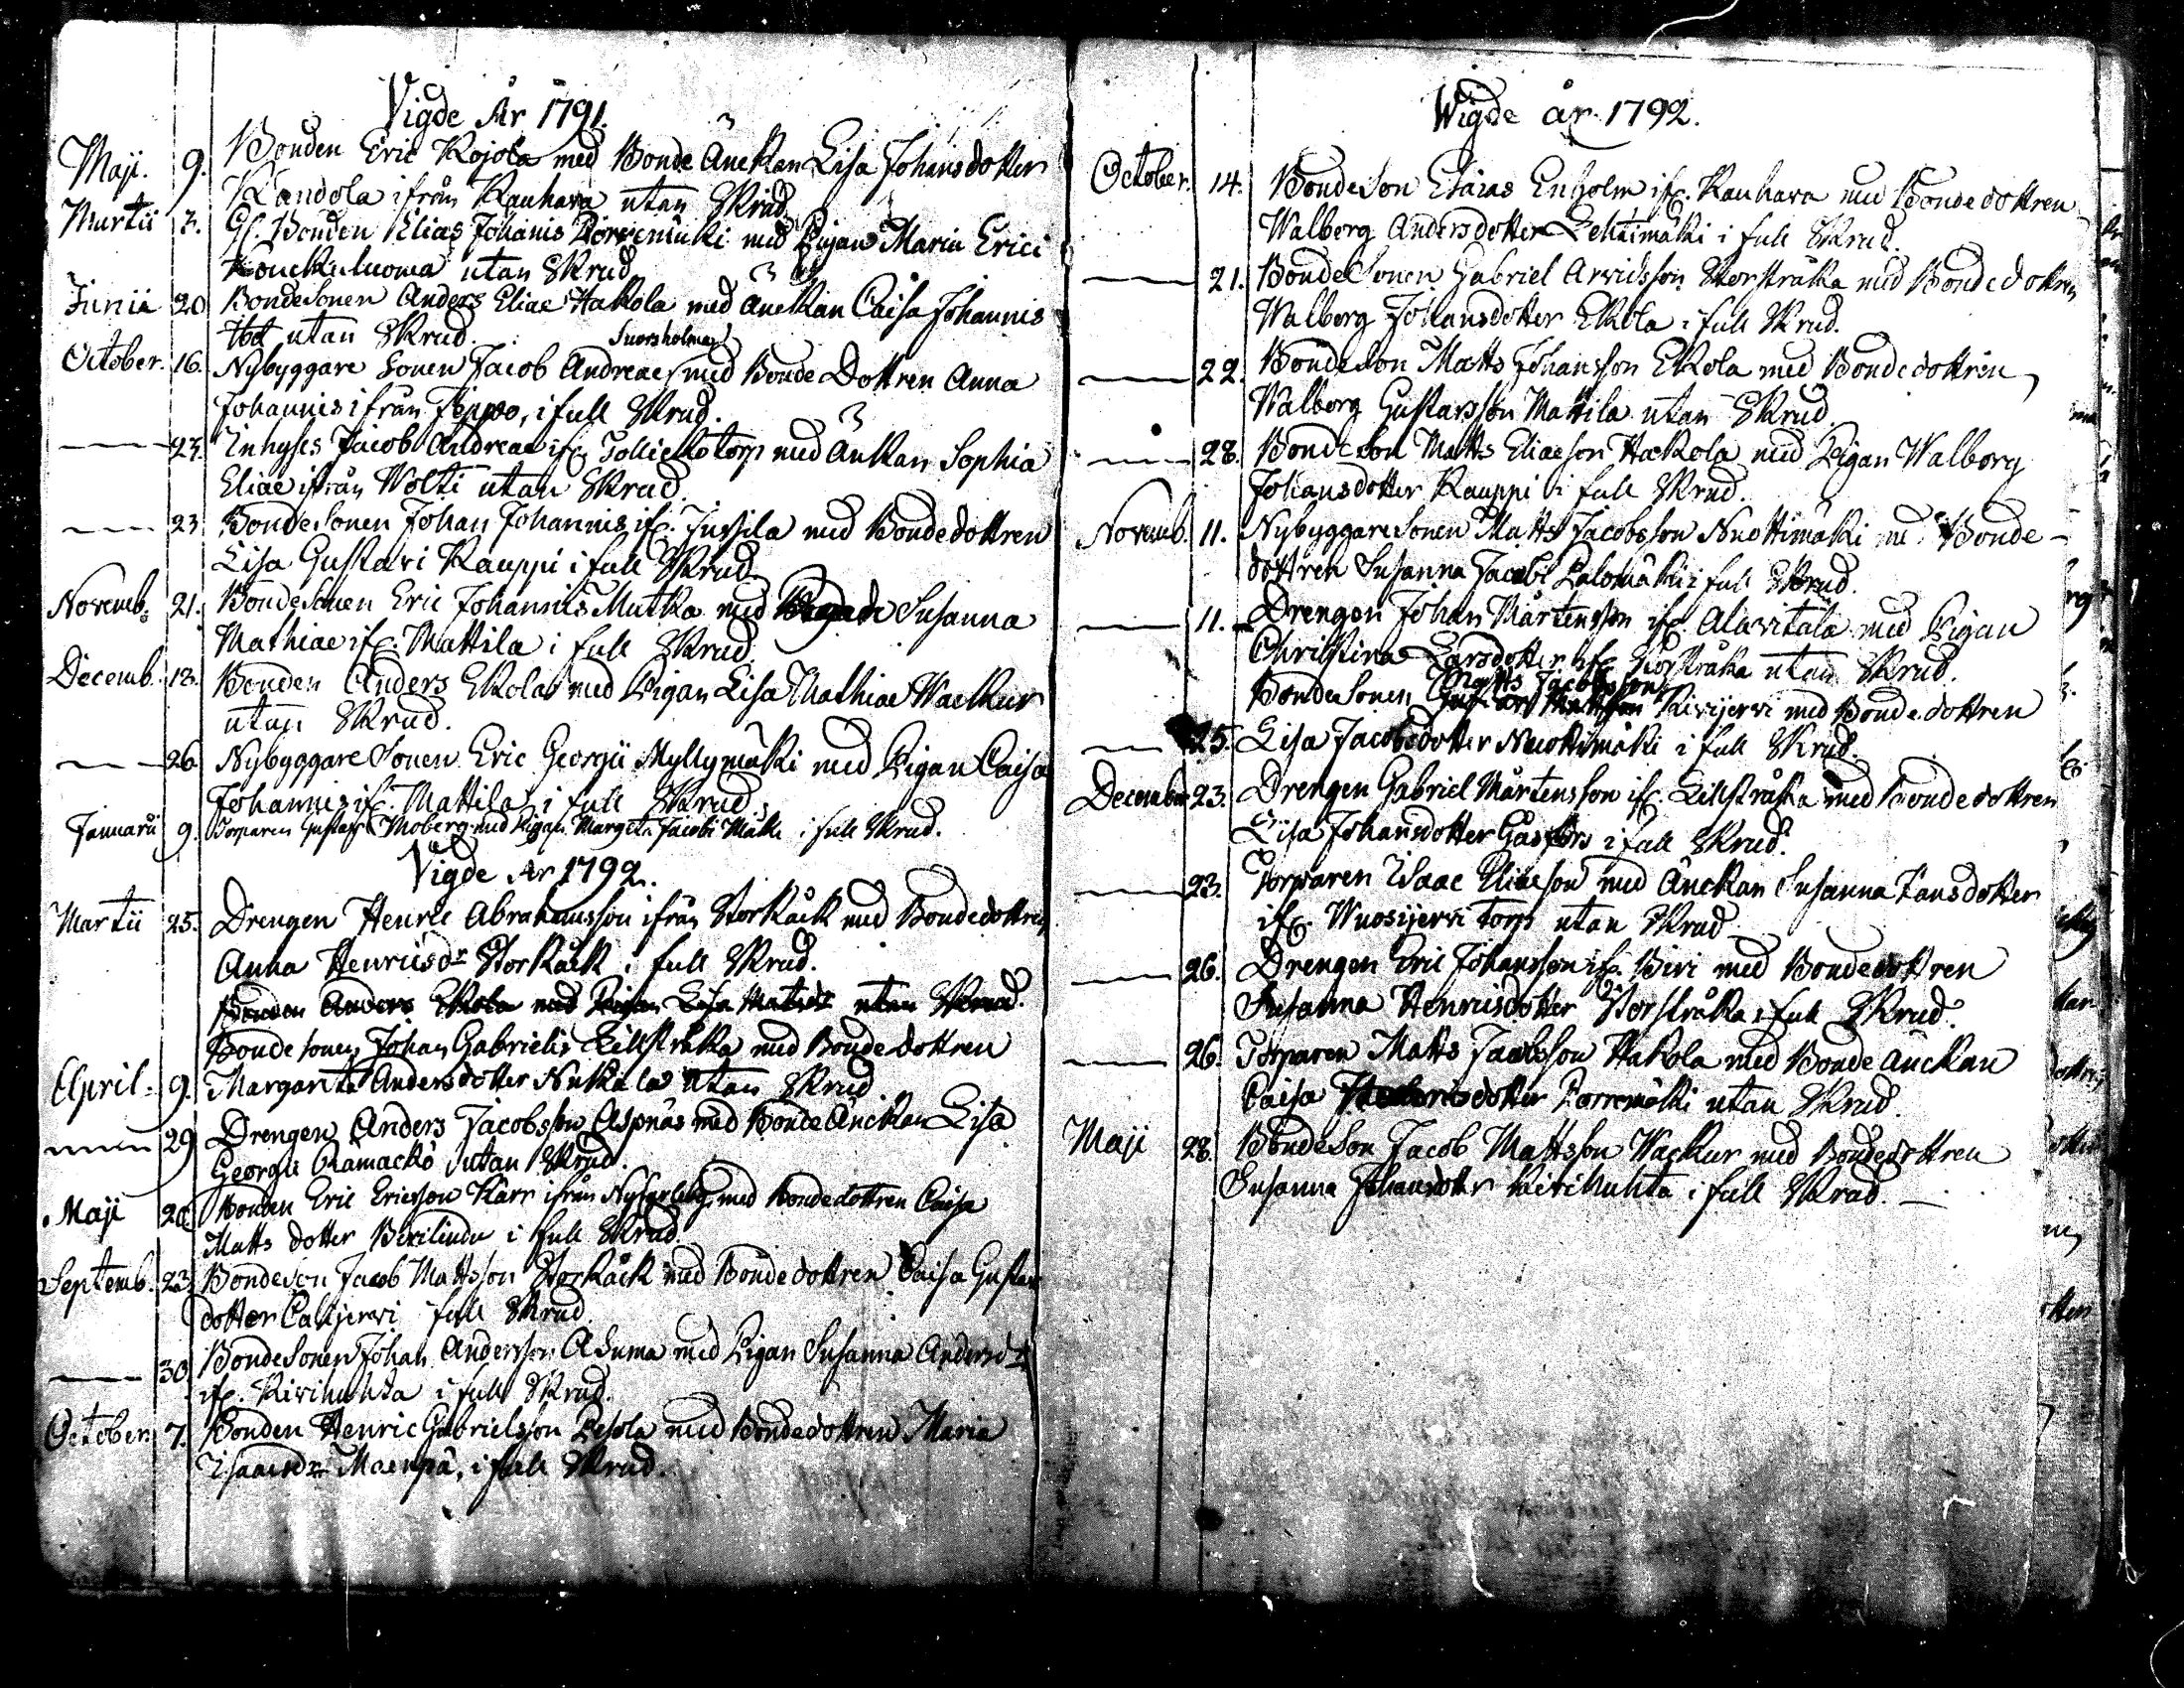 Vigde År 1791.
Maji. 9. Bonden Eric Kojola med Bonde Änckan Lisa Johansdotter
Kandola ifrån Kauhava utan Skrud
Martii 3. Gl. Bonden Elias Johanis med Pigan Maria Erici
utan Skrud
Junii 20 Bondesonen Anders Eliae Hakola med Änckan Caisa Johannis
utan Skrud.
Suorsholma
October. 16. Nybyggare Sonen Jacob Andreae med Bonde Dottren Anna
Johannis ifrån Jeppo, i full Skrud.
23. Inhyses Jacob Andreae ifr. torp med Änkan Sophia
Eliae ifrån Wolti utan Skrud.
23 Bondesonen Johan Johannis ifr. Jussila med Bondedottren
Lisa Gustavi Kauppi i full Skrud
Novemb. 21. Bondesonen Eric Johannis Mutka med Susanna
Mathiae ifr. Mattila i full Skrud
Decemb. 13. Bonden Anders Ekola med Pigan Lisa Mathiae Wackur
utan Skrud.
26 Nybyggare Sonen Eric Georgii Myllymäki med Pigan Caisa
Johannis ifr. Mattila i full Skrud
Januarii 9. Torparen Gustaf Moberg med Pigan Margeta Jacobi i full Skrud.
Vigde År 1792.
Martii 25. Drengen Henric Abrahamsson ifrån Storkåck med Bondedottren
Anna Henricsdr Storkåck i full Skrud.
Bonden Anders Ekola med Pigan Lisa utan Skrud.
Bonde sonen Johan Gabrielis Lillstråka med Bondedottren
April. 9. Margareta Andersdotter utan Skrud
29 Drengen Anders Jacobsson Aspnäs med Bonde Änckan Lisa
Georgii Rämackö utan Skrud.
Maji 20 Bonden Eric Ericsson Kårr ifrån Nyкarleby med Bondedottren Caisa
Matts dotter i full Skrud
Septemb. 23. Bondeson Jacob Mattsson Storkåck med Bondedottren Caisa Gustavs
dotter full Skrud
30 Bondesonen Johan Andersson med Pigan Susanna Andersdr
ifr. Kivihuhta i full Skrud.
October. 7. Bonden Henric Gabrielsson Pesola med Bondedottren Maria
Isaacsdr Maenpä, i full Skrud.
Wigde år 1792.
October. 14. Bondeson Esaias Enholm ifr. Kauhava med Bondedottren
Walborg Andersdotter Lehtimäki i full Skrud.
21. Bondesonen Gabriel Arvidsson Storstråka med Bondedottren
Walborg Johansdotter Ekola i full Skrud.
22. Bondeson Matts Johansson Ekola med Bondedottren
Walborg Gustavsson Mattila utan Skrud
28. Bondeson Matts Eliaeson Hakola med Pigan Walborg
Johansdotter Kauppi i full Skrud.
Novemb. 11. Nybyggare Sonen Matts Jacobsson Nuottimäki med Bonde-
dottren Susanna Jacobi Palomäki i full Skrud.
11. Drengen Johan Mårtensson ifr. Alavitala med Pigan
Christina Larsdotter ifr. Storstråka utan Skrud.
Matts Jacobsson
Bondesonen Kivijervi med Bondedottren
25. Lisa Jacobsdotter Nuottimäki i full Skrud.
December 23. Drengen Gabriel Mårtensson ifr. Lillstråka med Bondedottren
Lisa Johansdotter Gåsfors i full Skrud.
23. Torparen Isaac Eliaeson med Änckan Susanna Hansdotter
ifr. Wuosijervi Torp utan Skrud
26. Drengen Eric Johansson ifr. med Bondedottren
Susanna Henricsdotter Storstråka i full Skrud.
26. Torparen Matts Jacobsson Hakola med Bonde Änckan
Caisa utan Skrud.
Maji 28. Bondeson Jacob Mattsson Wackur med Bondedottren
Susanna Johansdotter Kivihuhta i full Skrud.